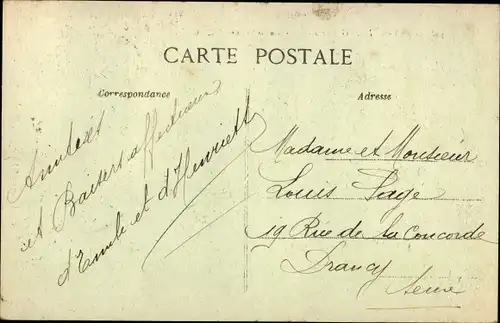 CARTE POSTALE
Correspondance
Adresse
et Baisers affectueux
et d'Henriett
Madame et Monsieur
Louis Page
19 Rue de la Concorde
Drancy
Seine